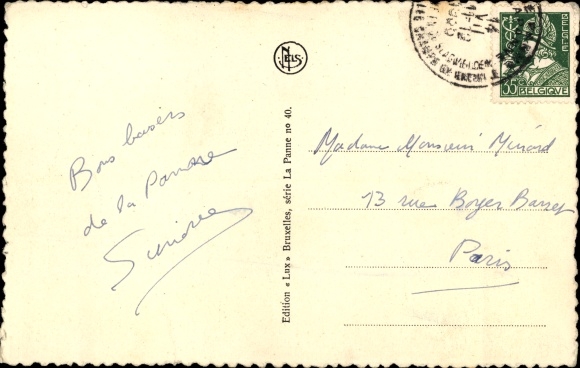 Bons baisers
de la Panne
Edition « Lux » Bruxelles, série La Panne nº 40.
NELS
BELGIE
35 BELGIQVE
Madame Monsieur Minard
13 rue Boyer Barret
Paris